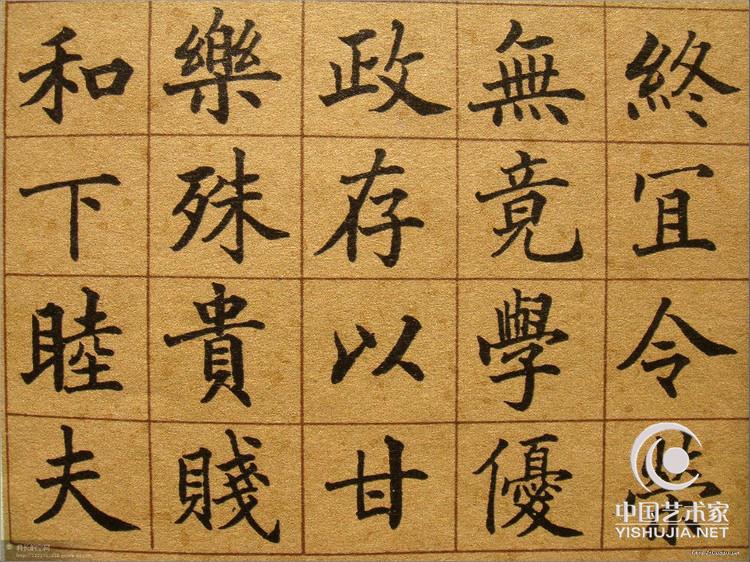 終宜令榮
無竟學優
政存以甘
樂殊貴賤
和下睦夫
中国艺术家
YISHUJIA.NET